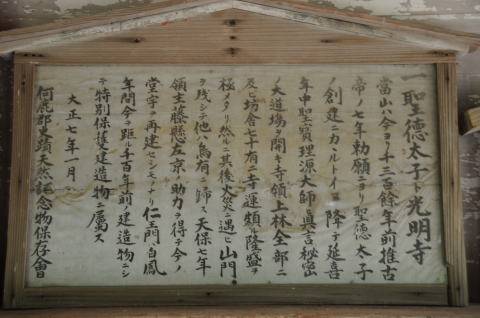 一聖徳太子ト光明寺
當山ハ今ヨリ千三百餘年前推古
帝ノ七年勅願ニヨリ聖徳太子
ノ創建ニカヽルトイフ降テ延喜
年中聖寳理源大師眞言秘密
ノ大道場ヲ開キ寺領上林全部ニ
及ビ坊舎七十有二寺運頗ル隆盛ヲ
極メタリ然ルニ其後火災ニ遇ヒ山門
ヲ残シテ他ハ烏有ニ歸ス天保七年
領主藤懸左京ノ助力ヲ得テ今ノ
堂宇ヲ再建セシモノナリ仁王門ハ白鳳
年間今ヲ距ル千百年前ノ建造物ニシ
テ特別保護建造物ニ屬ス
大正七年一月
何鹿郡史蹟天然記念物保存會